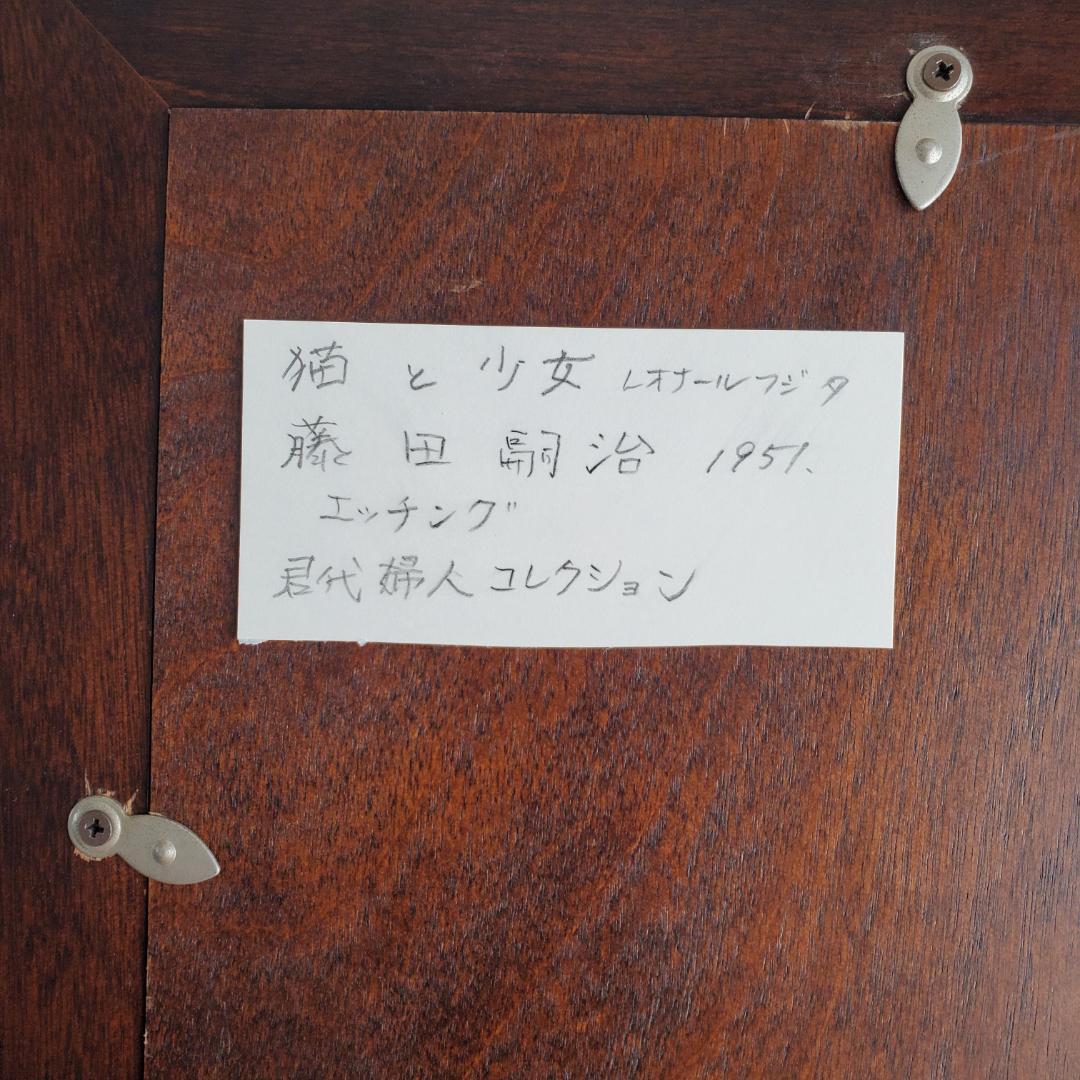 猫と少女 レオナールフジタ
藤田嗣治 1951.
エッチング
君代婦人コレクション